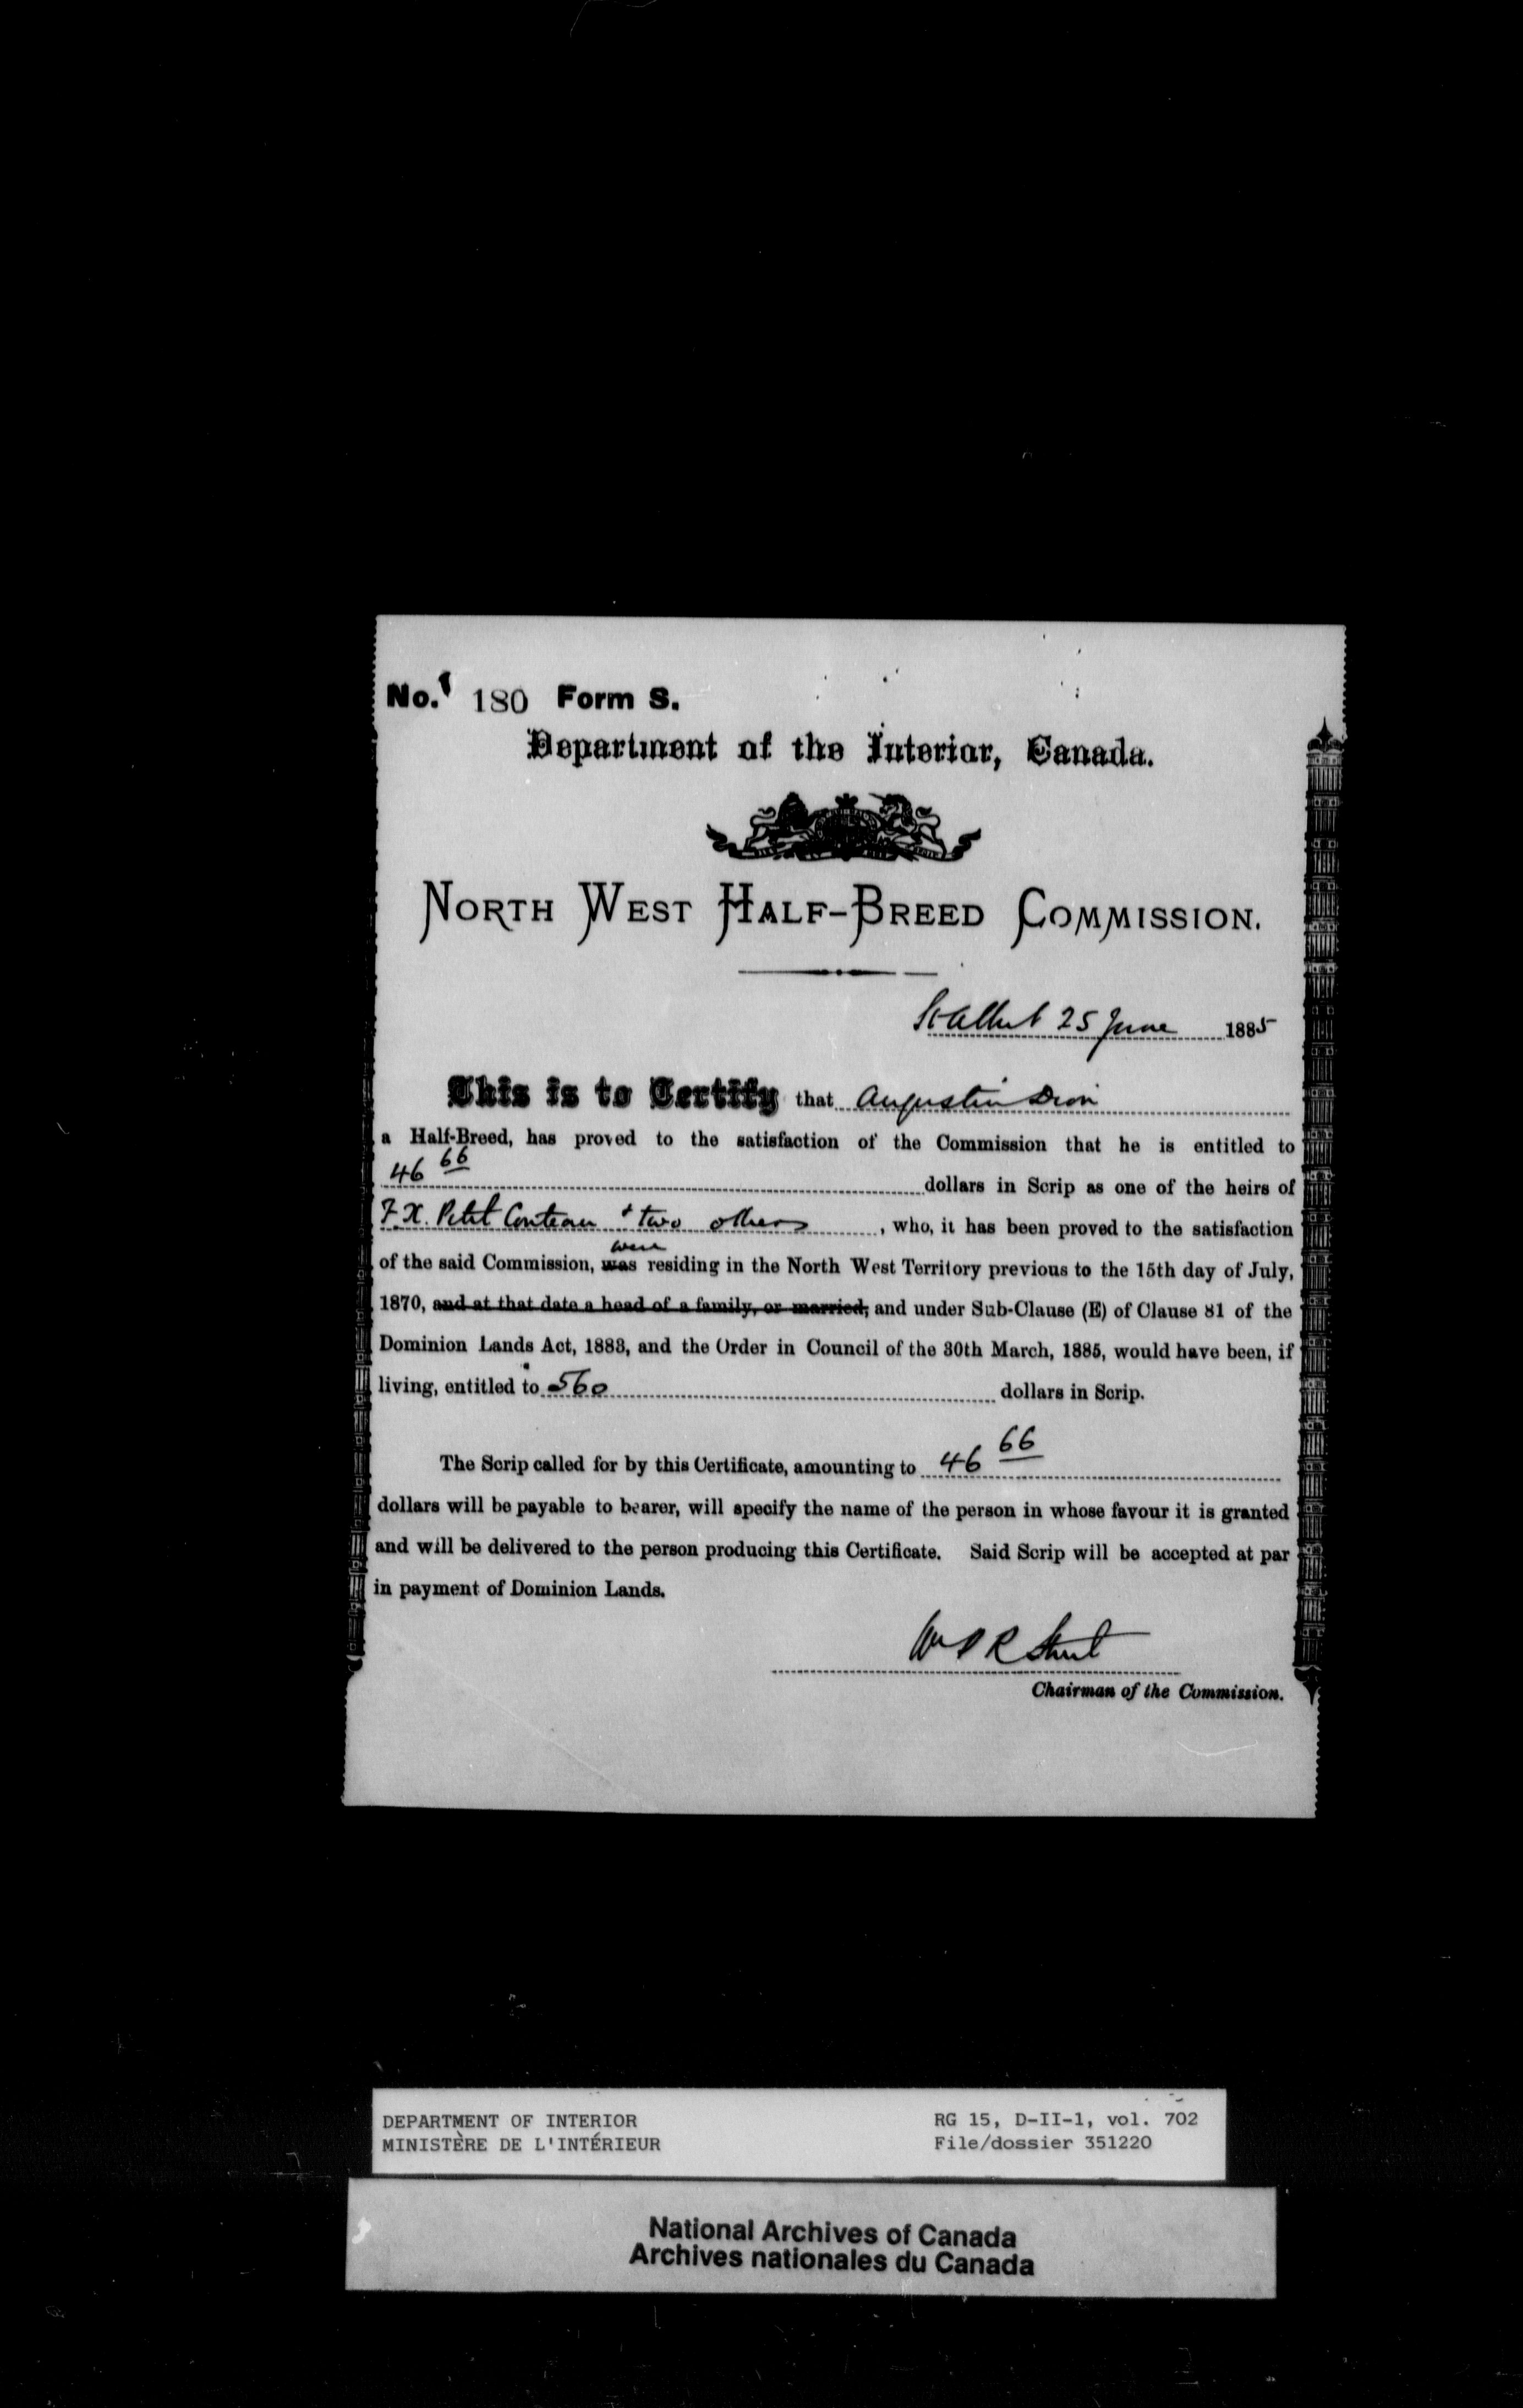 No. 180 Form S.
Department of the Interior, Canada.
NORTH WEST HALF-BREED COMMISSION.
St Albert 25 June 1885
This is to Certify that Augustin Dion
a Half-Breed, has proved to the satisfaction of the Commission that he is entitled to
46 66 dollars in Scrip as one of the heirs of
F. X. Petit Couteau & two others, who, it has been proved to the satisfaction
were
of the said Commission, was residing in the North West Territory previous to the 15th day of July,
1870, and at that date a head of a family, or married; and under Sub-Clause (E) of Clause 81 of the
Dominion Lands Act, 1883, and the Order in Council of the 30th March, 1885, would have been, if
living, entitled to 560 dollars in Scrip.
The Scrip called for by this Certificate, amounting to 46 66
dollars will be payable to bearer, will specify the name of the person in whose favour it is granted
and will be delivered to the person producing this Certificate. Said Scrip will be accepted at par
in payment of Dominion Lands.
Wm P R Street
Chairman of the Commission.
DEPARTMENT OF INTERIOR RG 15, D-II-1, vol. 702
MINISTÈRE DE L'INTÉRIEUR File/dossier 351220
National Archives of Canada
Archives nationales du Canada